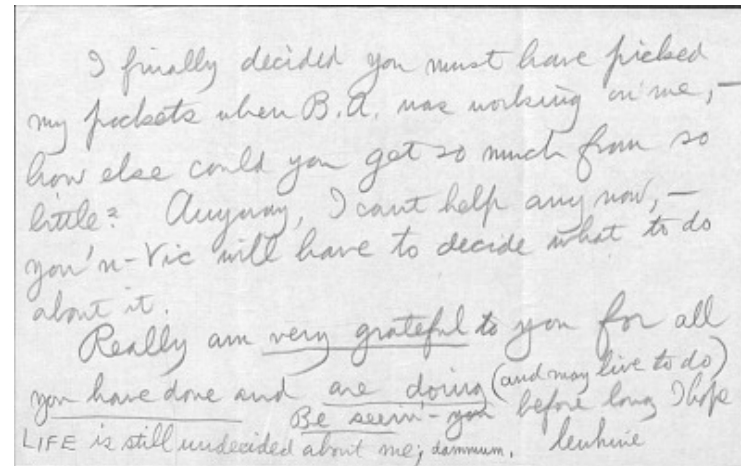 I finally decided you must have picked
my pockets when B.A. was working on me,—
how else could you get so much from so
little? Anyway, I cant help any now,—
you'n-Vic will have to decide what to do
about it.
Really am very grateful to you for all
you have done and are doing (and may live to do)
Be seein'-you before long I hope
LIFE is still undecided about me; dammum.